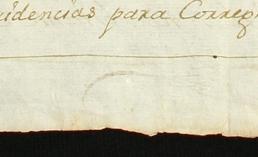 idencias para Correg